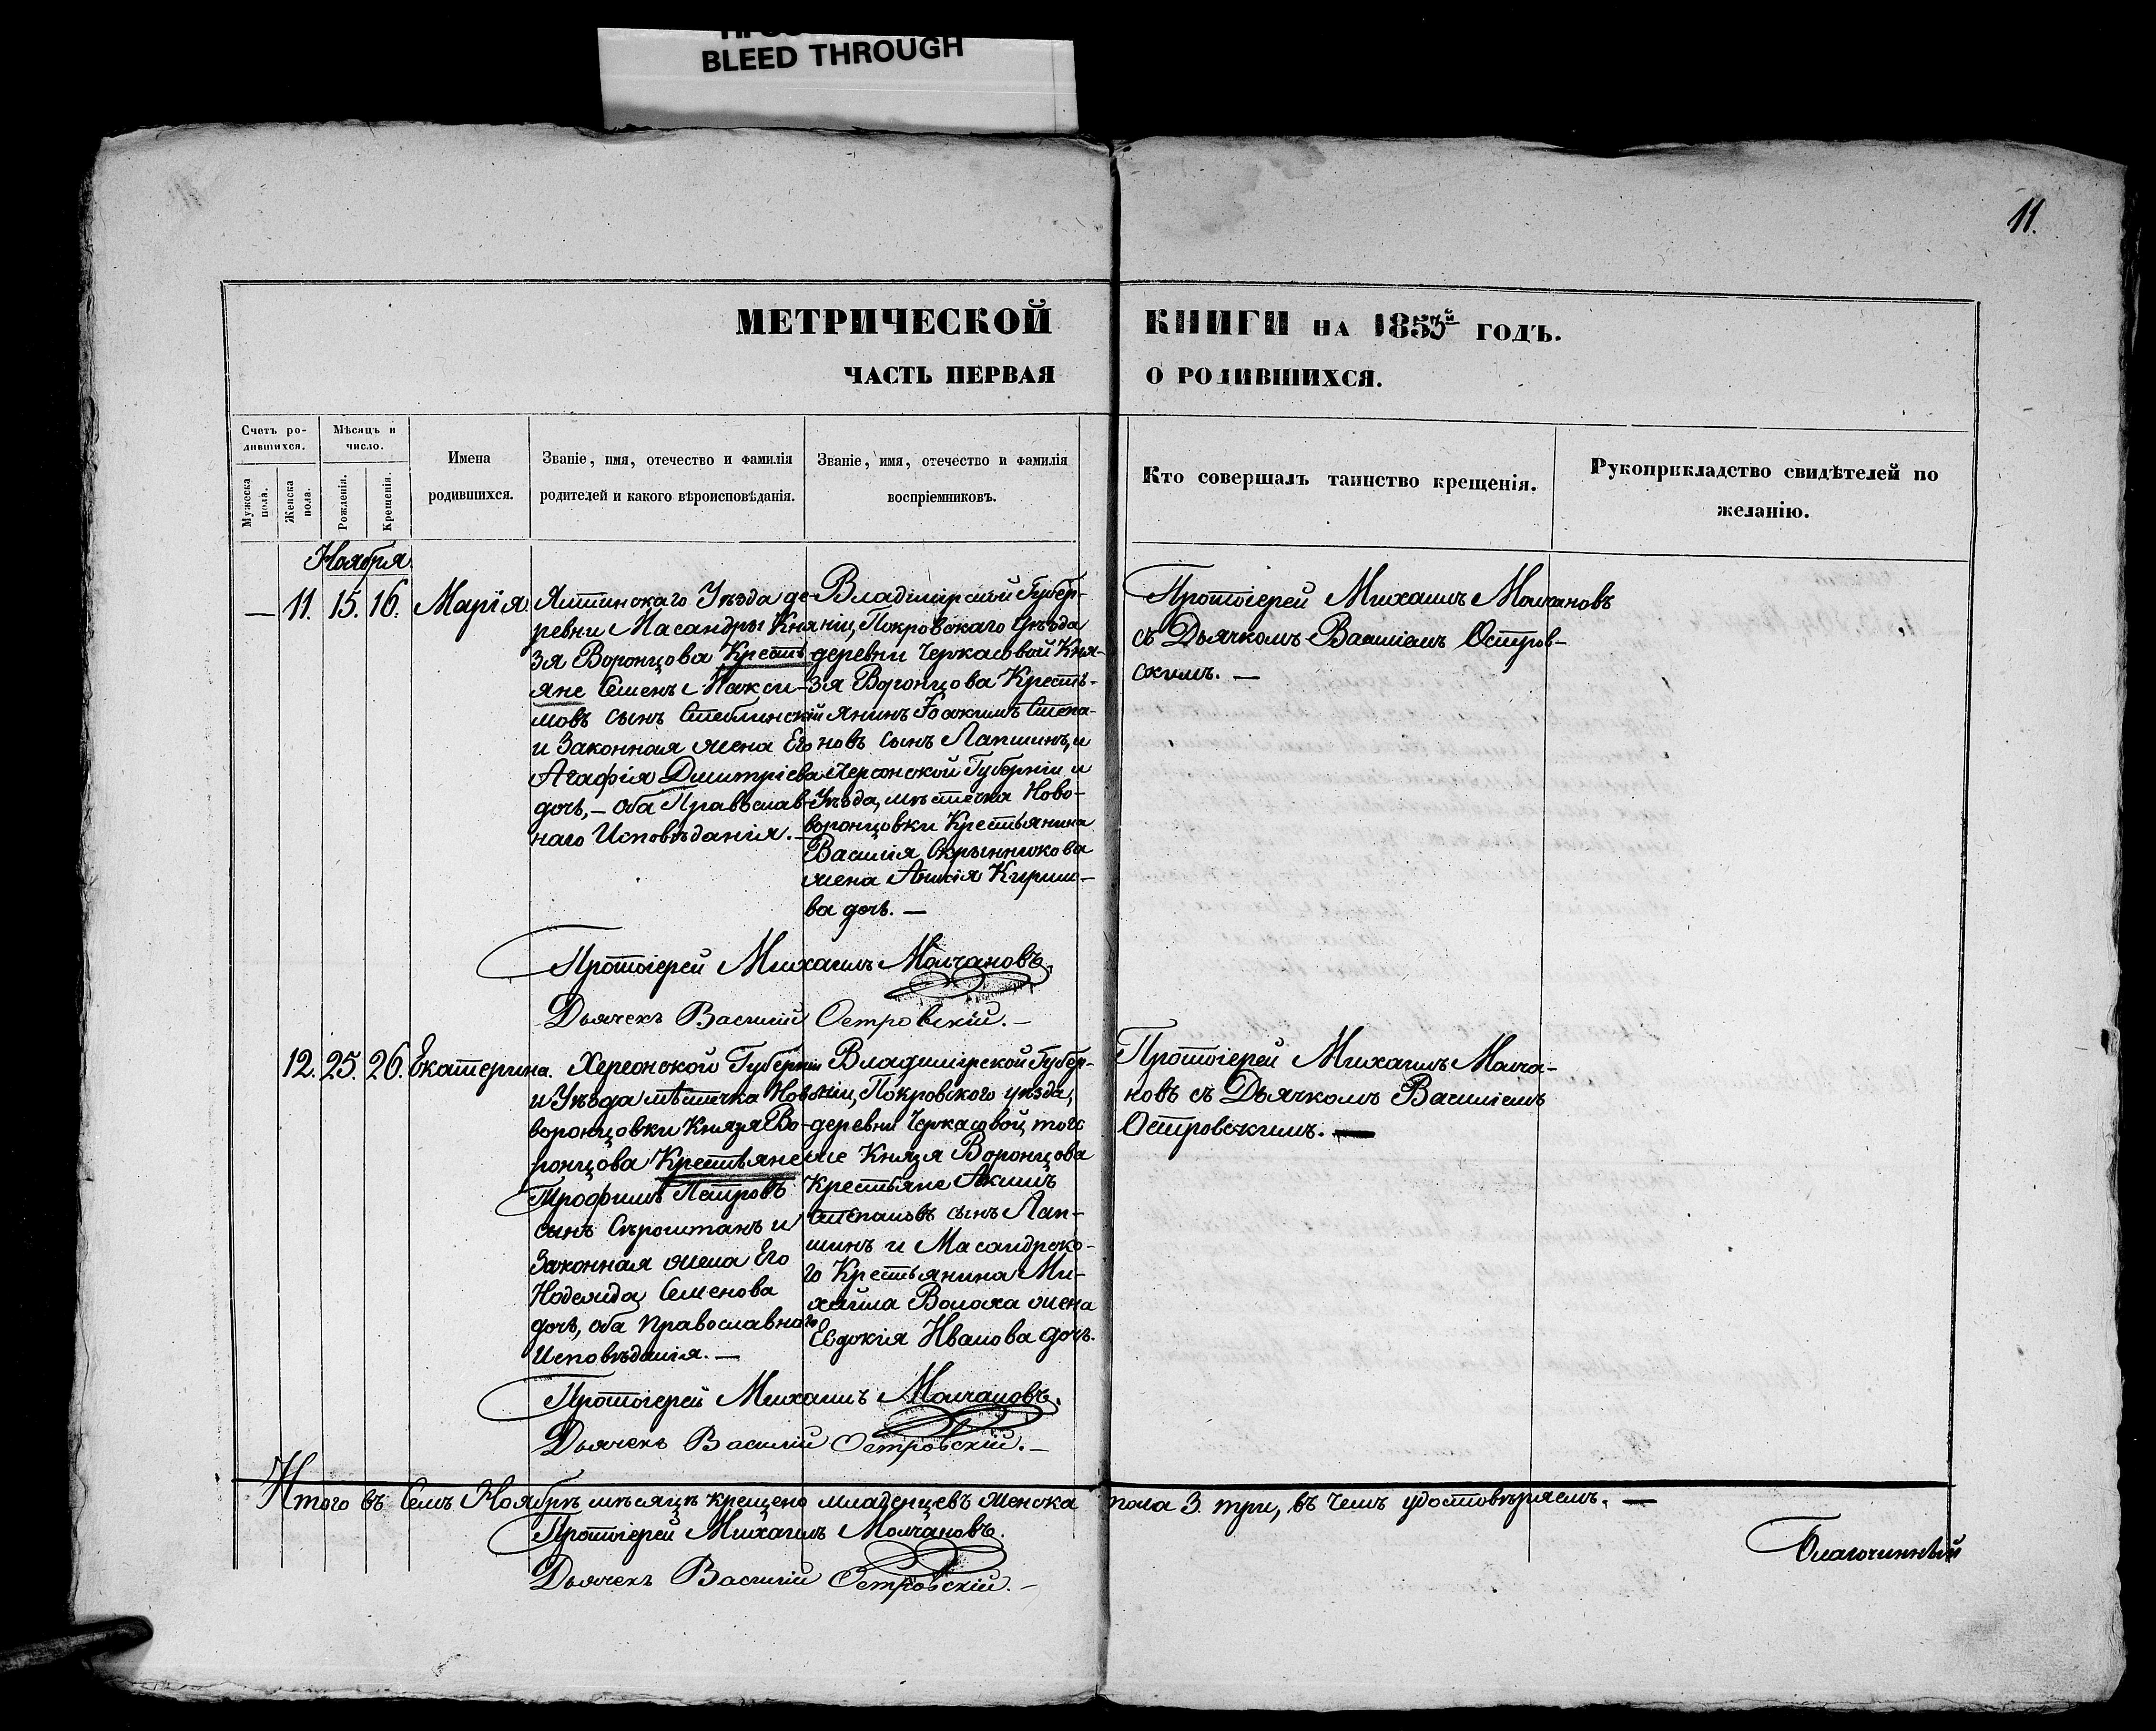 BLEED THROUGH
11.
МЕТРИЧЕСКОЙ КНИГИ НА 1853й ГОДЪ.
ЧАСТЬ ПЕРВАЯ О РОДИВШИХСЯ.
Счетъ ро-
дившихся.
Мужеска пола.
Женска пола.
Мѣсяцъ и
число.
Рожденія.
Крещенія.
Имена
родившихся.
Званіе, имя, отечество и фамилія
родителей и какого вѣроисповѣданія.
Званіе, имя, отечество и фамилія
воспріемниковъ.
Кто совершалъ таинство крещенія.
Рукоприкладство свидѣтелей по
желанію.
Ноября
— 11. 15. 16. Марія
Ялтинскаго Уѣзда де-
ревни Масандры Кня
зя Воронцова Кресть
яне Семенъ Макси-
мовъ сынъ Стеблинскій
и Законная жена Его
Агафія Димитріева
дочь, — оба Православ-
наго Исповѣданія. —
Владимірской Губер-
ніи, Покровскаго уѣзда
деревни Черкасовой Кня-
зя Воронцова Кресть-
янинъ Іоакимъ Степа-
новъ сынъ Лапшинъ, и
Херсонской Губерніи и
Уѣзда, мѣстечка Ново-
воронцовки Крестьянина
Василія Скрынникова
жена Анисія Кирило-
ва дочь. —
Протоіерей Михаилъ Молчановъ
съ Дьячкомъ Василіемъ Остров-
скимъ. —
Протоіерей Михаилъ Молчановъ.
Дьячекъ Василій Островскій. —
12. 25. 26. Екатерина.
Херсонской Губерніи
и Уѣзда мѣстечка Ново
воронцовки Князя Во-
ронцова Крестьяне
Трофимъ Петровъ
сынъ Сѣроштанъ и
Законная жена Его
Надежда Семенова
дочь, оба Православнаго
Исповѣданія. —
Владимірской Губер-
ніи, Покровского уѣзда,
деревни Черкасовой, того
же Князя Воронцова
Крестьяне Акимъ
Степановъ сынъ Лап-
шинъ и Масандрско-
го Крестьянина Ми-
хайла Волоха жена
Евдокія Иванова дочь.
Протоіерей Михаилъ Молча-
новъ съ Дьячкомъ Василіемъ
Островскимъ. —
Протоіерей Михаилъ Молчановъ.
Дьячекъ Василій Островскій. —
Итого въ Семъ Ноябрѣ мѣсяцѣ крещено младенцевъ женска пола 3. три, въ чемъ удостовѣряемъ. —
Протоіерей Михаилъ Молчановъ.
Дьячекъ Василій Островскій. —
Благочинный